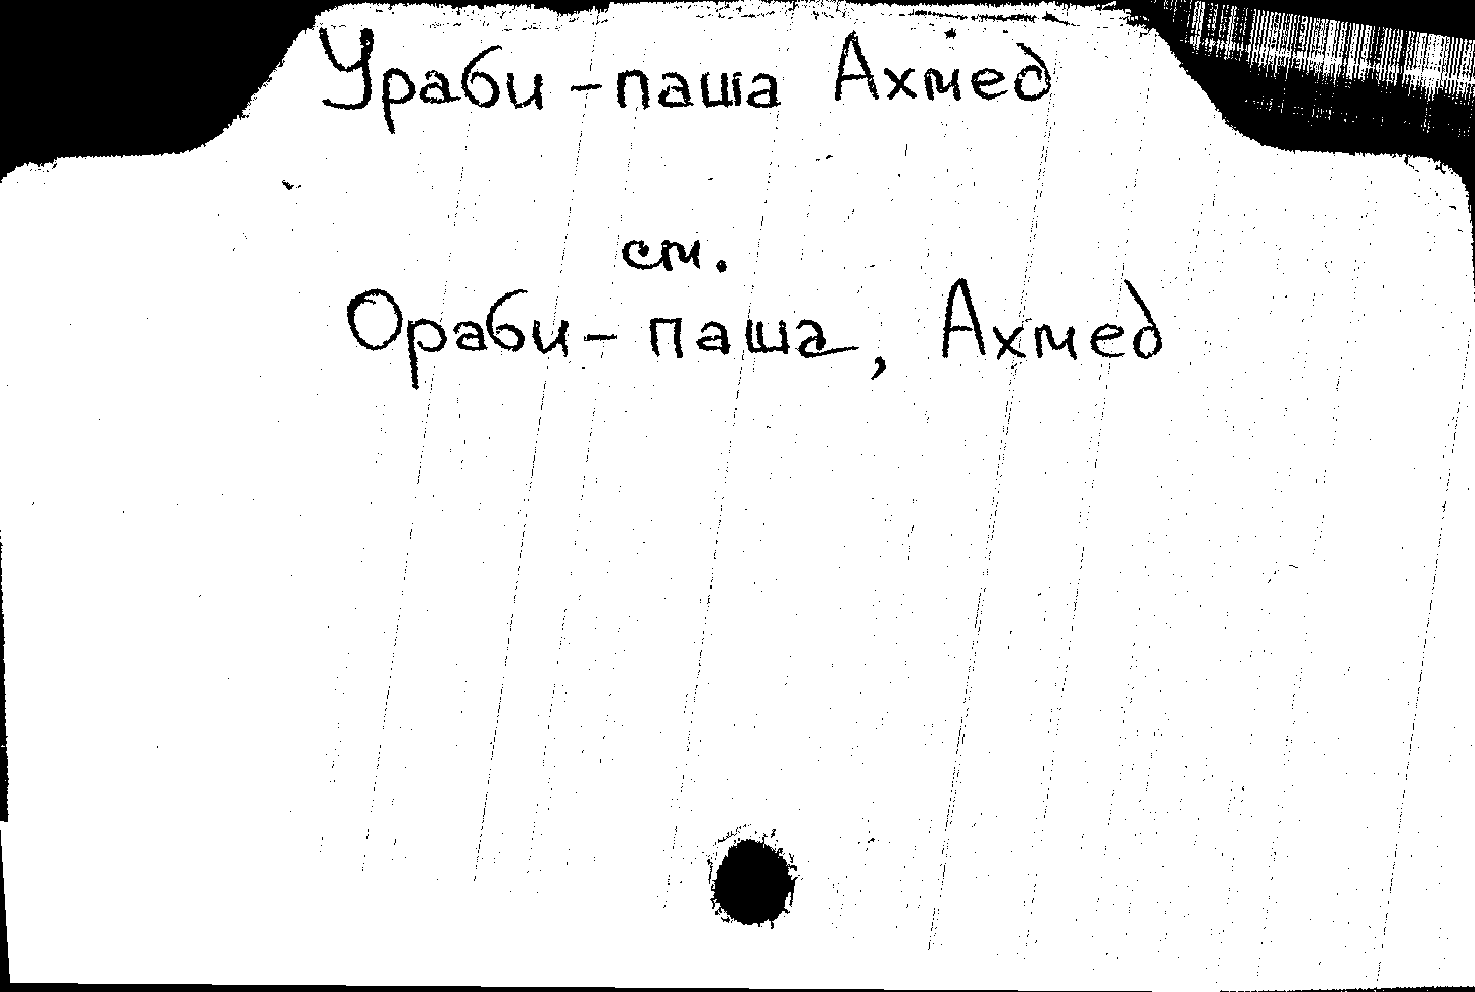 Ураби - паша Ахмед
см.
Ораби - паша, Ахмед